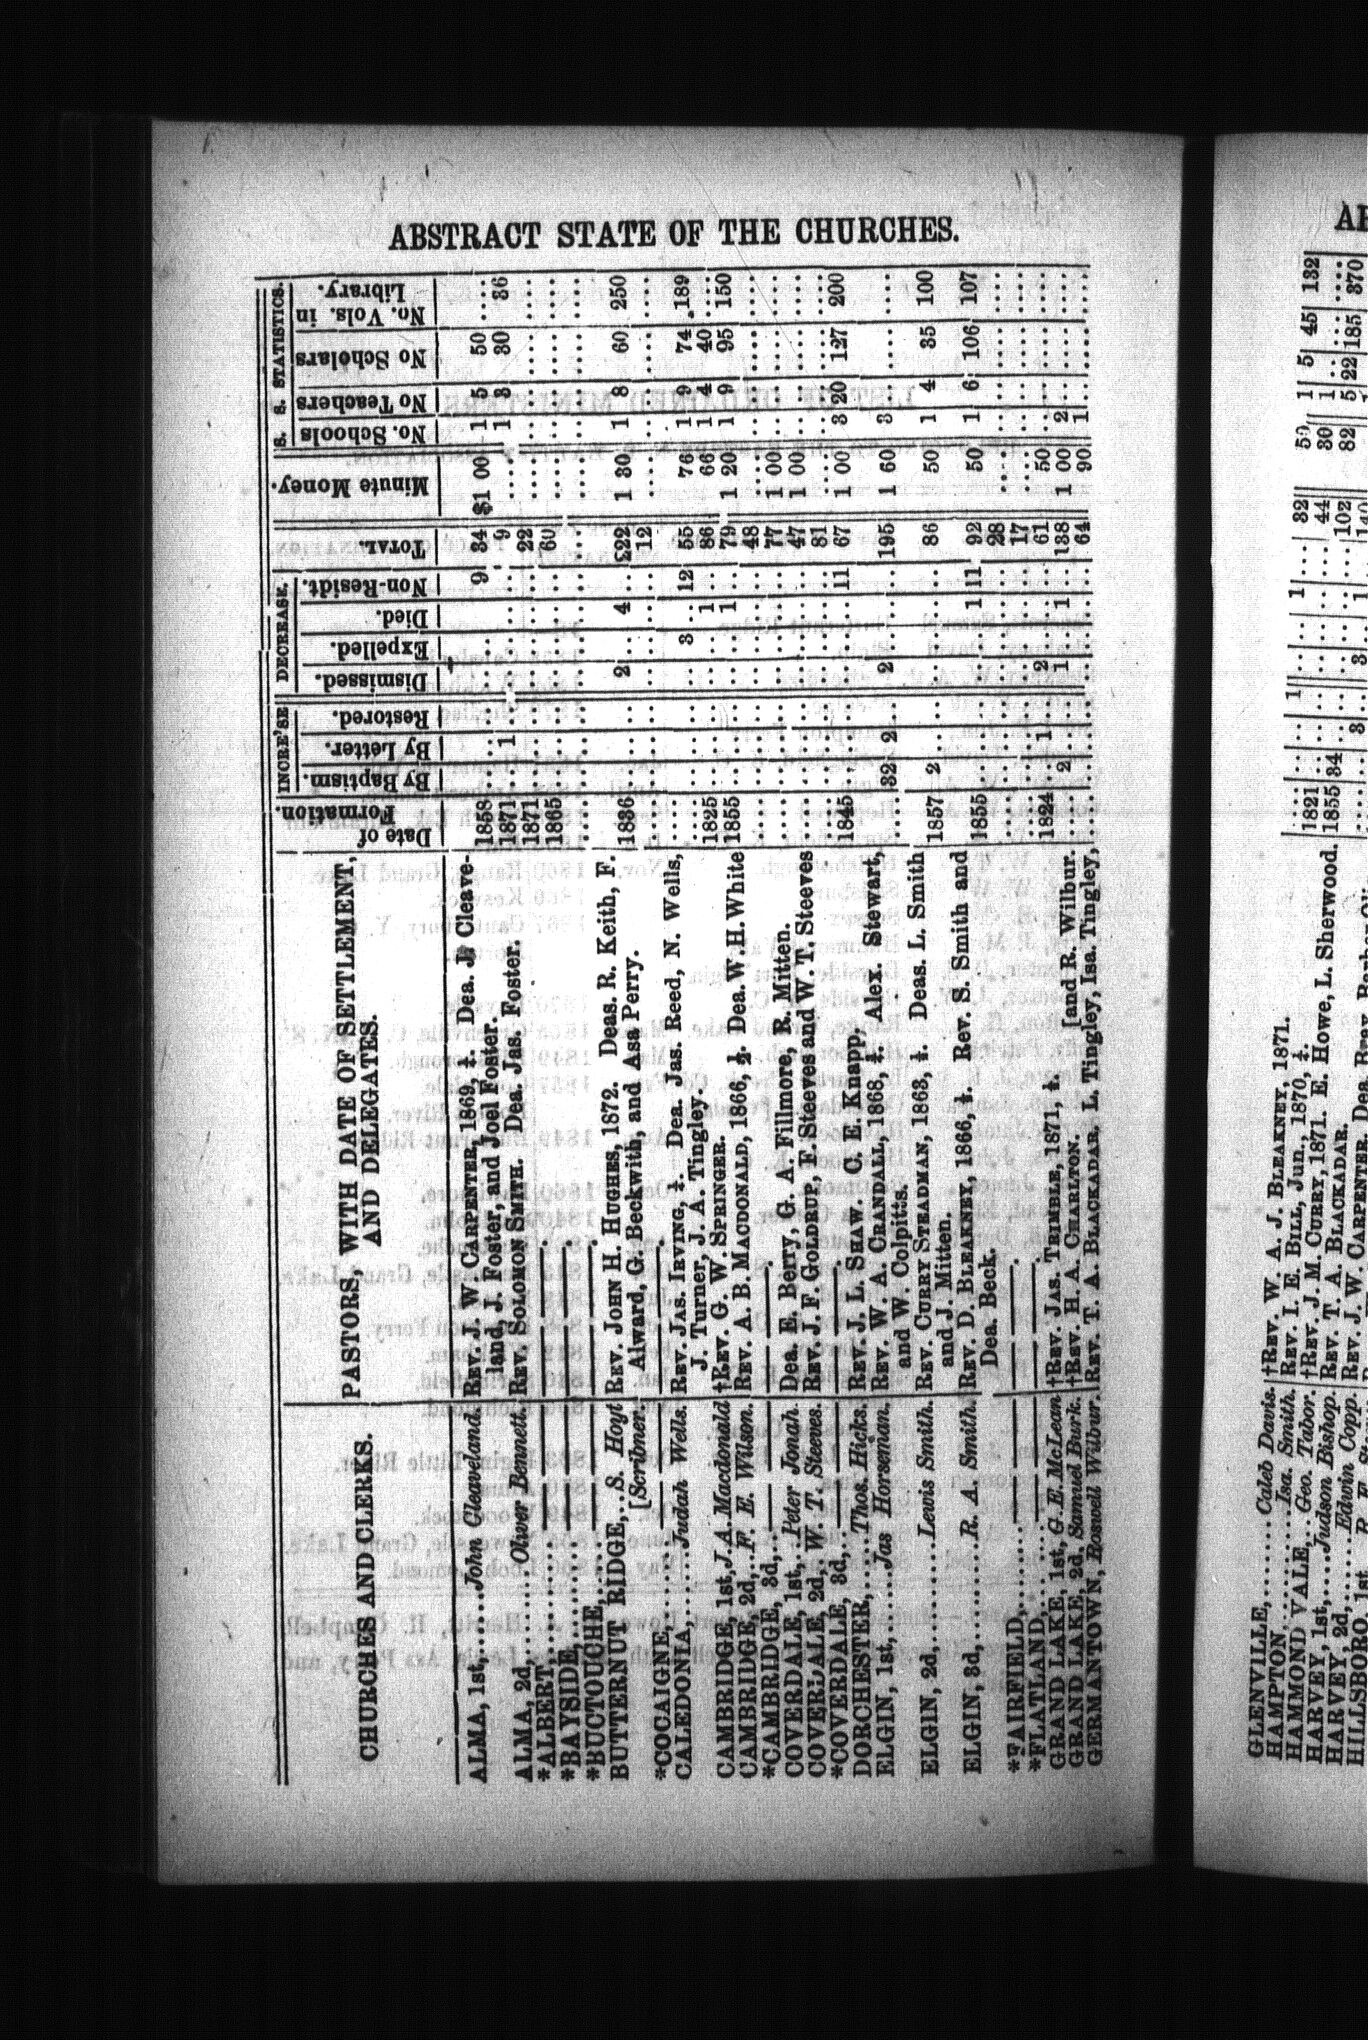 ABSTRACT STATE OF THE CHURCHES.
CHURCHES AND CLERKS.
PASTORS, WITH DATE OF SETTLEMENT,
AND DELEGATES.
Date of
Formation.
INCRE'SE
By Baptism.
By Letter.
Restored.
DECREASE.
Dismissed.
Expelled.
Died.
Non-Residt.
TOTAL.
Minute Money.
S. S. STATISTICS.
No. Schools
No Teachers
No Scholars
No. Vols. in
Library.
ALMA, 1st,......John Cleaveland. REV. J. W. CARPENTER, 1869, ½. Dea. J. Cleave- 1858 9 34 $1 00 1 5 50
land, J. Foster, and Joel Foster.
ALMA, 2d,......Oliver Bennett. REV. SOLOMON SMITH. Dea. Jas. Foster. 1871 1 9 1 3 30 36
*ALBERT, 1871 22
*BAYSIDE, 1865 60
*BUCTOUCHE,
BUTTERNUT RIDGE,...S. Hoyt REV. JOHN H. HUGHES, 1872. Deas. R. Keith, F. 1836 2 4 222 1 30 1 8 60 250
[Scribner. Alward, G. Beckwith, and Asa Perry.
*COCAIGNE, 12
CALEDONIA,......Judah Wells. REV. JAS. IRVING, ¼. Dea. Jas. Reed, N. Wells, 3 12 55 76 1 9 74 189
J. Turner, J. A. Tingley.
CAMBRIDGE, 1st, J. A. Macdonald †REV. G. W. SPRINGER. 1825 1 86 66 1 4 40
CAMBRIDGE, 2d,..F. E. Wilson. REV. A. B. MACDONALD, 1866, ½. Dea. W. H. White 1855 1 79 1 20 1 9 95 150
*CAMBRIDGE, 3d, 48
COVERDALE, 1st,..Peter Jonah. Dea. E. Berry, G. A. Fillmore, R. Mitten. 77 1 00
COVERDALE, 2d, W. T. Steeves. REV. J. F. GOLDRUP, F. Steeves and W. T. Steeves 47 1 00
*COVERDALE, 3d, 81
DORCHESTER,...Thos. Hicks. REV. J. L. SHAW. C. E. Knapp. 1845 11 67 1 00 3 20 127 200
ELGIN, 1st,......Jas Horseman. REV. W. A. CRANDALL, 1868, ¼. Alex. Stewart, 32 2 2 195 1 60 3
and W. Colpitts.
ELGIN, 2d,......Lewis Smith. REV. CURRY STEADMAN, 1863, ¼. Deas. L. Smith 1857 2 86 1 50 1 4 35 100
and J. Mitten.
ELGIN, 3d,......R. A. Smith. REV. D. BLEAKNEY, 1866, ¼. Rev. S. Smith and 1855 1 11 92 50 1 6 106 107
Dea. Beck.
*FAIRFIELD, 28
*FLATLAND, 17
GRAND LAKE, 1st, G. E. McLean †REV. JAS. TRIMBLE, 1871, ¼. 1824 1 2 61 50
GRAND LAKE, 2d, Samuel Burk. †REV. H. A. CHARLTON. [and R. Wilbur. 2 1 1 138 1 00 2
GERMANTOWN, Roswell Wilbur. REV. T. A. BLACKADAR, L. Tingley, Isa. Tingley, 64 90 1
GLENVILLE,......Caleb Davis. †REV. W. A. J. BLEAKNEY, 1871.
HAMPTON,......Isa. Smith. REV. I. E. BILL, Jun., 1870, ¼.
HAMMOND VALE, Geo. Tabor. †REV. J. M. CURRY, 1871. E. Howe, L. Sherwood.
HARVEY, 1st,....Judson Bishop. REV. T. A. BLACKADAR.
HARVEY, 2d,....Edwin Copp. REV. J. W. CARPENTER, Dea.
HILLSBORO, 1st